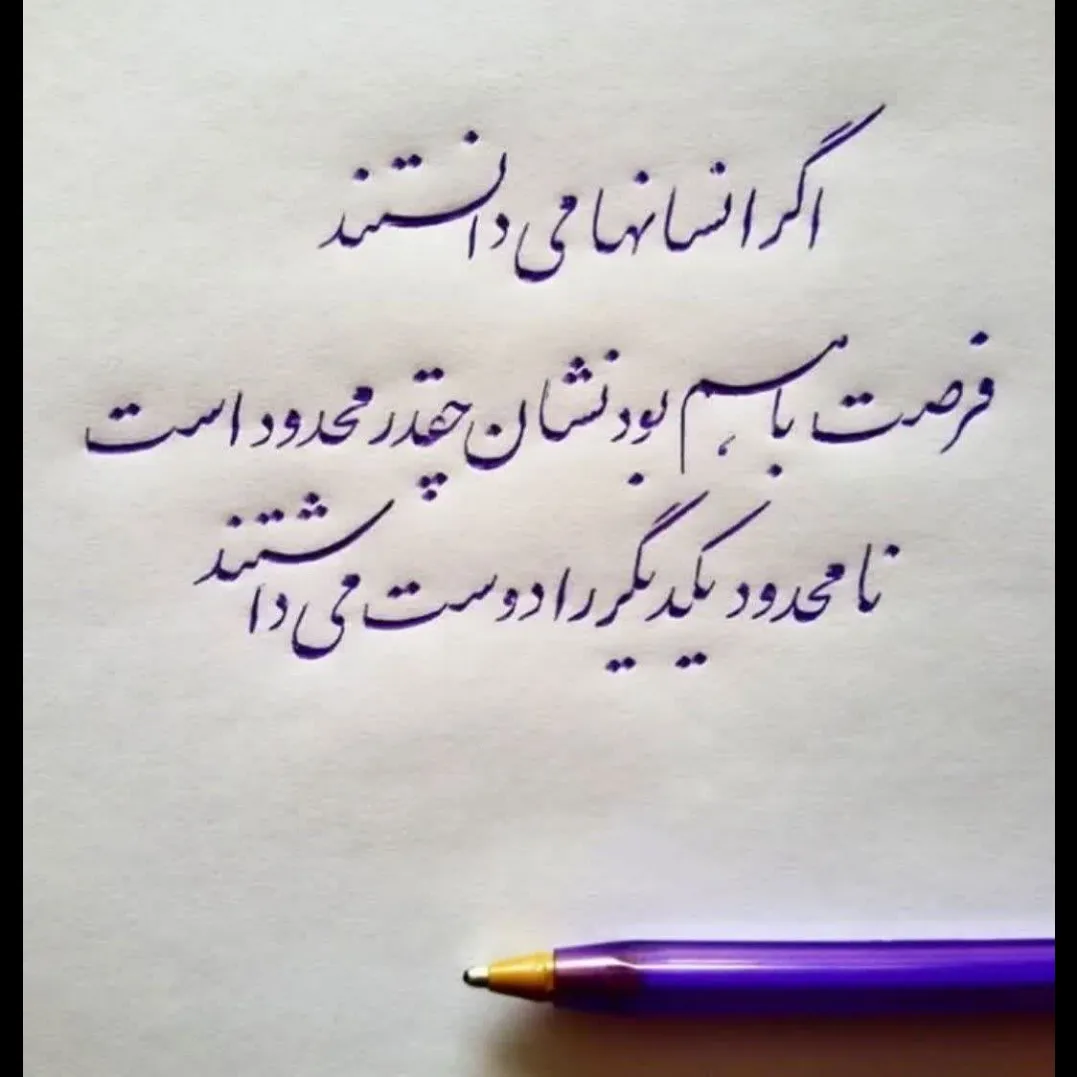 اگر انسانها می دانستند
فرصت با هم بودنشان چقدر محدود است
نامحدود یکدیگر را دوست می داشتند